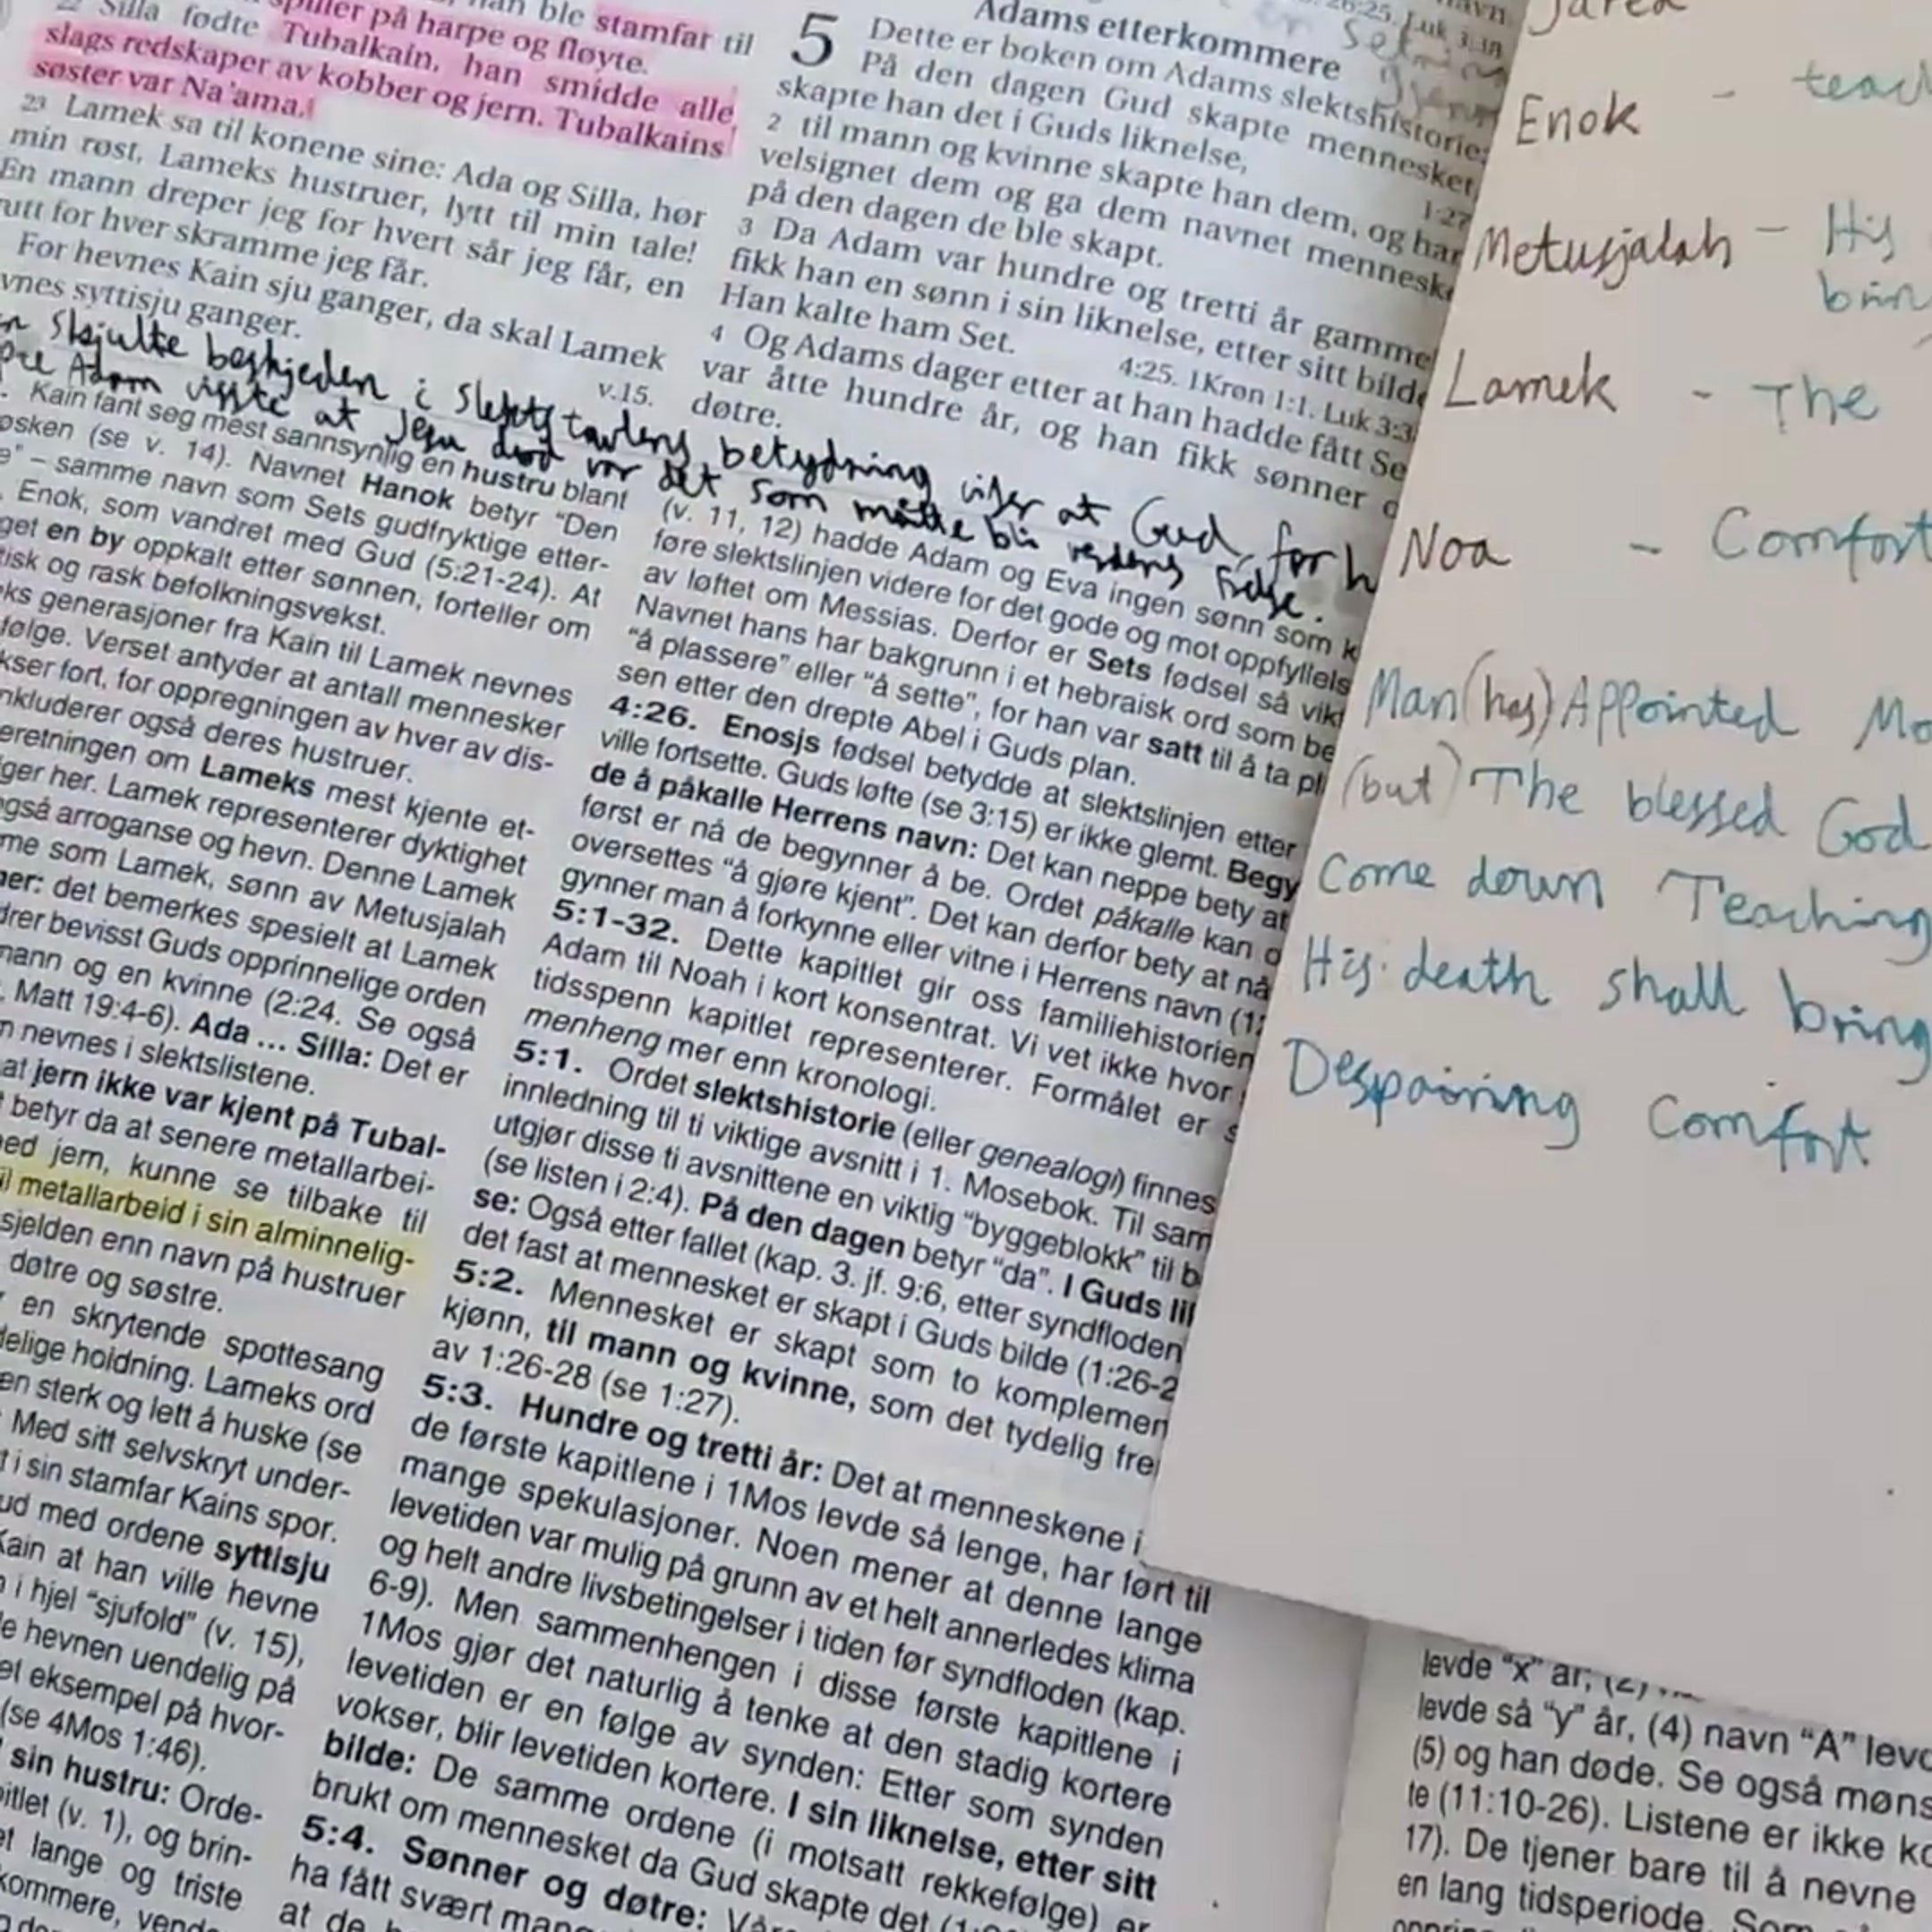 han ble stamfar til
spiller på harpe og fløyte.
22 Silla fødte Tubalkain, han smidde alle
slags redskaper av kobber og jern. Tubalkains
søster var Na'ama.
23 Lamek sa til konene sine: Ada og Silla, hør
min røst, Lameks hustruer, lytt til min tale!
En mann dreper jeg for hvert sår jeg får, en
for hver skramme jeg får.
For hevnes Kain sju ganger, da skal Lamek
syttisju ganger.
v.15.
skjulte beskjeden i slektstavlens betydning viser at Gud, for
Adam visste at Jesu død var det som måtte bli verdens frelse.
Kain fant seg mest sannsynlig en hustru blant
(se v. 14). Navnet Hanok betyr "Den
– samme navn som Sets gudfryktige etter-
Enok, som vandret med Gud (5:21-24). At
en by oppkalt etter sønnen, forteller om
og rask befolkningsvekst.
generasjoner fra Kain til Lamek nevnes
følge. Verset antyder at antall mennesker
fort, for oppregningen av hver av dis-
inkluderer også deres hustruer.
om Lameks mest kjente et-
her. Lamek representerer dyktighet
også arroganse og hevn. Denne Lamek
som Lamek, sønn av Metusjalah
det bemerkes spesielt at Lamek
bevisst Guds opprinnelige orden
mann og en kvinne (2:24. Se også
Matt 19:4-6). Ada ... Silla: Det er
nevnes i slektslistene.
at jern ikke var kjent på Tubal-
betyr da at senere metallarbei-
med jern, kunne se tilbake til
metallarbeid i sin alminnelig-
sjelden enn navn på hustruer
døtre og søstre.
en skrytende spottesang
holdning. Lameks ord
en sterk og lett å huske (se
Med sitt selvskryt under-
i sin stamfar Kains spor.
med ordene syttisju
Kain at han ville hevne
i hjel "sjufold" (v. 15),
hevnen uendelig på
et eksempel på hvor-
(se 4Mos 1:46).
sin hustru: Orde-
(v. 1), og brin-
lange og triste
5 Adams etterkommere
Dette er boken om Adams slektshistorie:
På den dagen Gud skapte mennesket,
skapte han det i Guds liknelse,
1:27
2 til mann og kvinne skapte han dem, og han
velsignet dem og ga dem navnet menneske
på den dagen de ble skapt.
3 Da Adam var hundre og tretti år gammel
fikk han en sønn i sin liknelse, etter sitt bilde
Han kalte ham Set.
4:25. 1Krøn 1:1. Luk 3:3
4 Og Adams dager etter at han hadde fått Se
var åtte hundre år, og han fikk sønner o
døtre.
(v. 11, 12) hadde Adam og Eva ingen sønn som k
føre slektslinjen videre for det gode og mot oppfyllels
av løftet om Messias. Derfor er Sets fødsel så vikt
Navnet hans har bakgrunn i et hebraisk ord som be
"å plassere" eller "å sette", for han var satt til å ta pl
sen etter den drepte Abel i Guds plan.
4:26. Enosjs fødsel betydde at slektslinjen etter
ville fortsette. Guds løfte (se 3:15) er ikke glemt. Begy
de å påkalle Herrens navn: Det kan neppe bety at
først er nå de begynner å be. Ordet påkalle kan o
oversettes "å gjøre kjent". Det kan derfor bety at nå
gynner man å forkynne eller vitne i Herrens navn (12
5:1-32. Dette kapitlet gir oss familiehistorien
Adam til Noah i kort konsentrat. Vi vet ikke hvor
tidsspenn kapitlet representerer. Formålet er s
menheng mer enn kronologi.
5:1. Ordet slektshistorie (eller genealogi) finnes
innledning til ti viktige avsnitt i 1. Mosebok. Til sam
utgjør disse ti avsnittene en viktig "byggeblokk" til b
(se listen i 2:4). På den dagen betyr "da". I Guds lil
se: Også etter fallet (kap. 3. jf. 9:6, etter syndfloden
det fast at mennesket er skapt i Guds bilde (1:26-2
5:2. Mennesket er skapt som to komplemen
kjønn, til mann og kvinne, som det tydelig fre
av 1:26-28 (se 1:27).
5:3. Hundre og tretti år: Det at menneskene i
de første kapitlene i 1Mos levde så lenge, har ført til
mange spekulasjoner. Noen mener at denne lange
levetiden var mulig på grunn av et helt annerledes klima
og helt andre livsbetingelser i tiden før syndfloden (kap.
6-9). Men sammenhengen i disse første kapitlene i
1Mos gjør det naturlig å tenke at den stadig kortere
levetiden er en følge av synden: Etter som synden
vokser, blir levetiden kortere. I sin liknelse, etter sitt
bilde: De samme ordene (i motsatt rekkefølge) er
brukt om mennesket da Gud skapte det
5:4. Sønner og døtre:
ha fått svært
at de
26:25. Luk 3:38
Jared
Enok - teac
Metusjalah - His
brin
Lamek - The
Noa - Comfort
Man (has) Appointed Mo
(but) The blessed God
Come down Teaching
His death shall bring
Despairing Comfort
levde "x" år, (2)
levde så "y" år, (4) navn "A" levd
(5) og han døde. Se også møns
te (11:10-26). Listene er ikke ko
17). De tjener bare til å nevne
en lang tidsperiode. Som